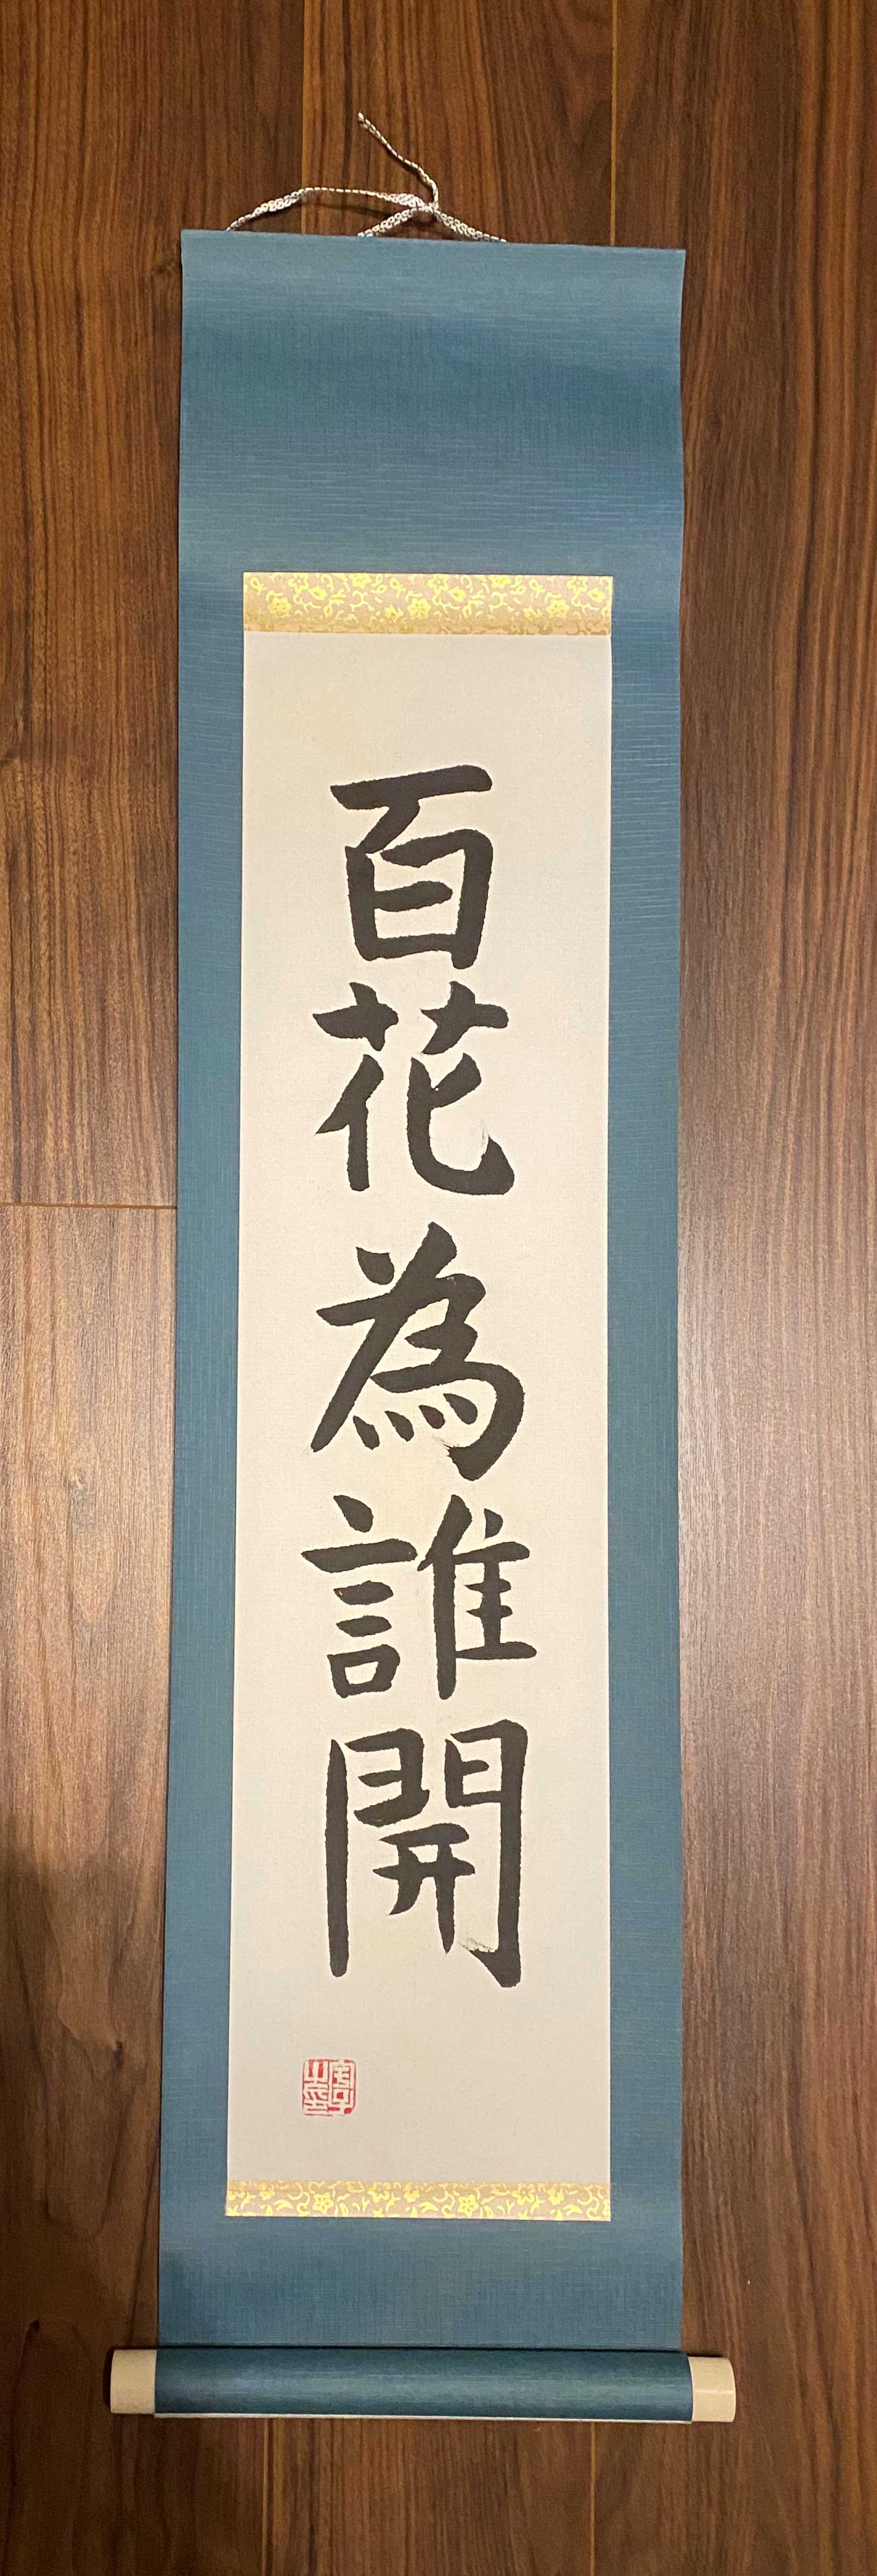 百花為誰開